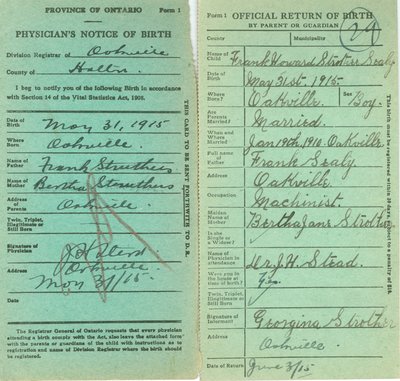 PROVINCE OF ONTARIO Form 1
PHYSICIAN'S NOTICE OF BIRTH
Division Registrar of Oakville
County of Halton
I beg to notify you of the following Birth in accordance
with Section 14 of the Vital Statistics Act, 1908.
Date of Birth May 31, 1915
Where Born Oakville
Name of Father Frank Struthers
Name of Mother Bertha Struthers
Address of Parents Oakville.
Twin, Triplet, Illegitimate or Still Born
Signature of Physician
Address Oakville
May 31/15
Date
The Registrar General of Ontario requests that every physician
attending a birth comply with the Act, also leave the attached form
with the parents or guardians of the child with instructions as
to registration and name of Division Registrar where the birth should
be registered.
THIS CARD TO BE SENT FORTHWITH TO D.R.
Form 1 OFFICIAL RETURN OF BIRTH
BY PARENT OR GUARDIAN
29
County Municipality
Name of Child Frank Howard Strother Sealy
Date of Birth May 31st. 1915.
Where Born? Oakville. Sex Boy.
Are Parents Married? Married.
When and Where Married? Jan 19th. 1910. Oakville
Full name of Father Frank Sealy.
Address Oakville.
Occupation Machinist.
Maiden Name of Mother Bertha Jane Strother
Is she Single or a Widow?
Name of Physician in attendance Dr. J. H. Stead.
Were you in the house at time of birth? Yes.
Twin, Triplet, Illegitimate or Still Born
Signature of Informant Georgina Strother
Address Oakville.
Date of Return June 3/15